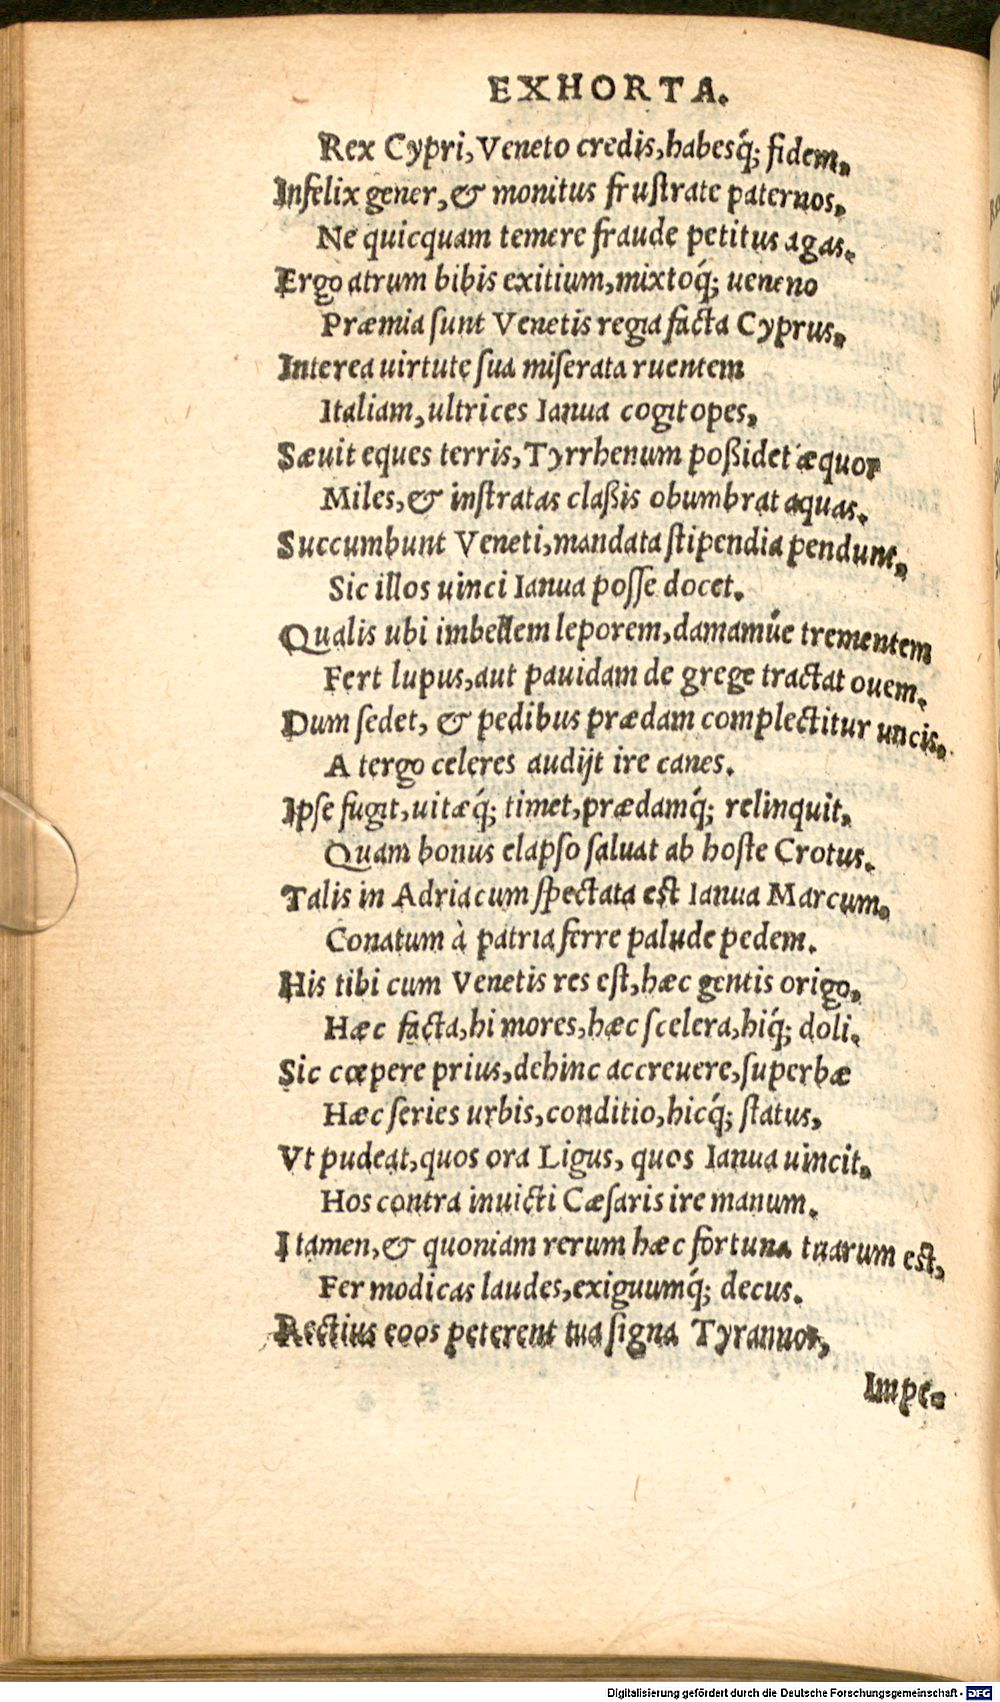 EXHORTA.
Rex Cypri, Veneto credis, habesq́; fidem.
Infelix gener, & monitus frustrate paternos,
Ne quicquam temere fraude petitus agas.
Ergo atrum bibis exitium, mixtoq́; ueneno
Præmia sunt Venetis regia facta Cyprus.
Interea uirtute sua miserata ruentem
Italiam, ultrices Ianua cogit opes,
Sæuit eques terris, Tyrrhenum poßidet æquor
Miles, & instratas claßis obumbrat aquas.
Succumbunt Veneti, mandata stipendia pendunt,
Sic illos uinci Ianua posse docet.
Qualis ubi imbellem leporem, damamúe trementem
Fert lupus, aut pauidam de grege tractat ouem.
Dum sedet, & pedibus prædam complectitur uncis,
A tergo celeres audijt ire canes.
Ipse fugit, uitæq́; timet, prædamq́; relinquit,
Quam bonus elapso saluat ab hoste Crotus.
Talis in Adriacum spectata est Ianua Marcum,
Conatum à patria ferre palude pedem.
His tibi cum Venetis res est, hæc gentis origo,
Hæc facta, hi mores, hæc scelera, hiq́; doli.
Sic cœpere prius, dehinc accreuere, superbæ
Hæc series urbis, conditio, hicq́; status,
Vt pudeat, quos ora Ligus, quos Ianua uincit,
Hos contra inuicti Cæsaris ire manum.
I tamen, & quoniam rerum hæc fortuna tuarum est,
Fer modicas laudes, exiguumq́; decus.
Rectius eoos peterent tua signa Tyrannos,
Impe-
Digitalisierung gefördert durch die Deutsche Forschungsgemeinschaft - DFG